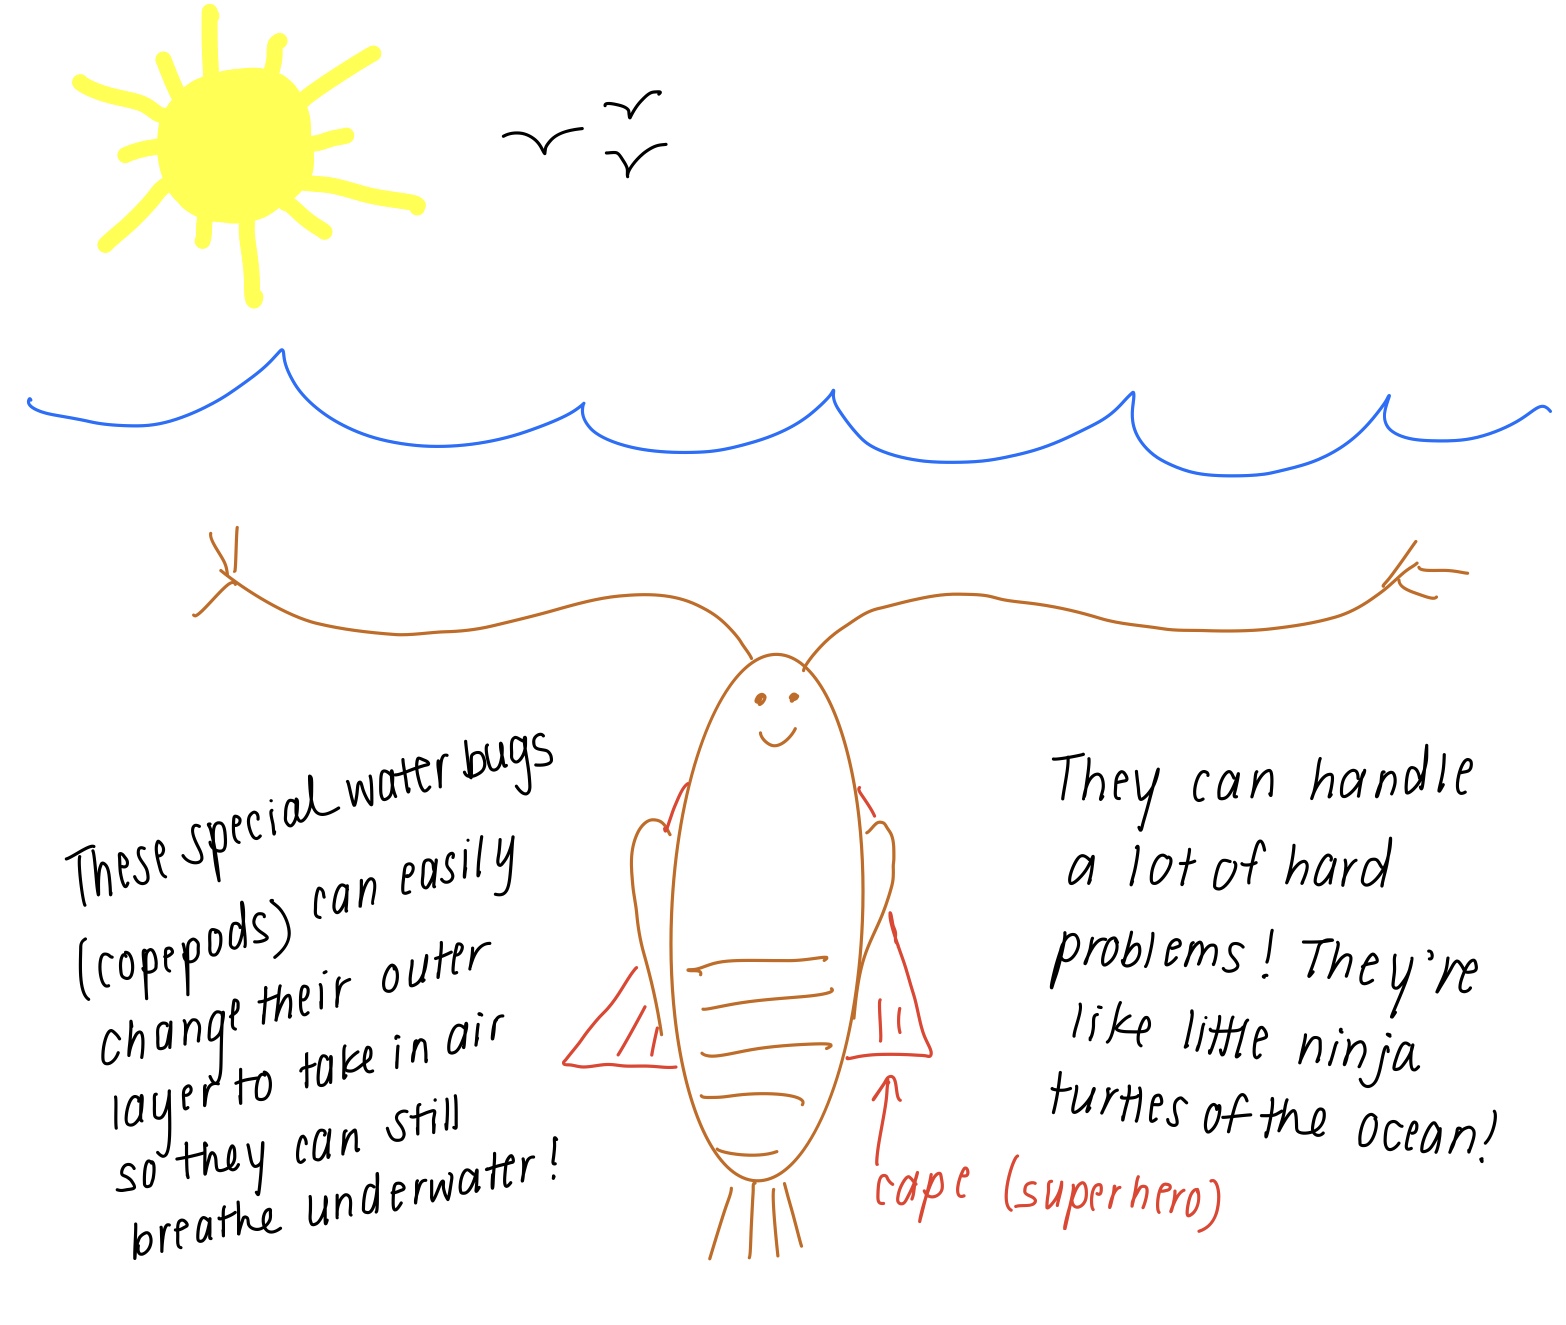 These special water bugs
(copepods) can easily
change their outer
layer to take in air
so they can still
breathe underwater!
They can handle
a lot of hard
problems! They're
like little ninja
turtles of the ocean!
cape (superhero)